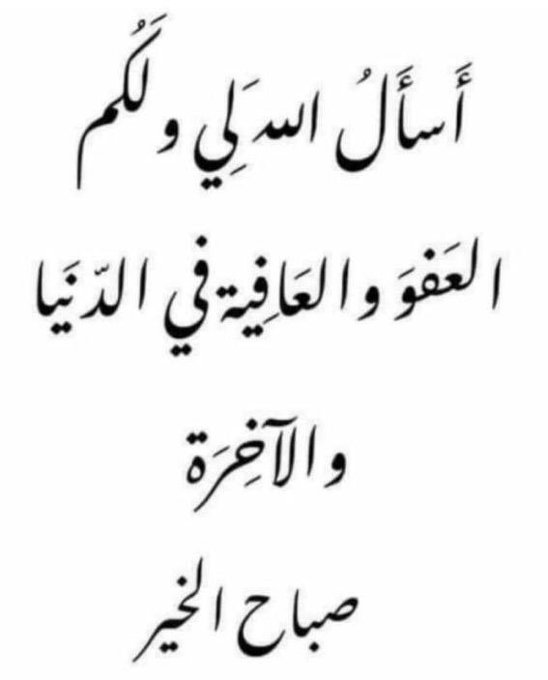 أَسأَلُ اللهَ لِي ولَكُم
العَفوَ والعَافِية في الدّنَيا
والآخِرَة
صباح الخير